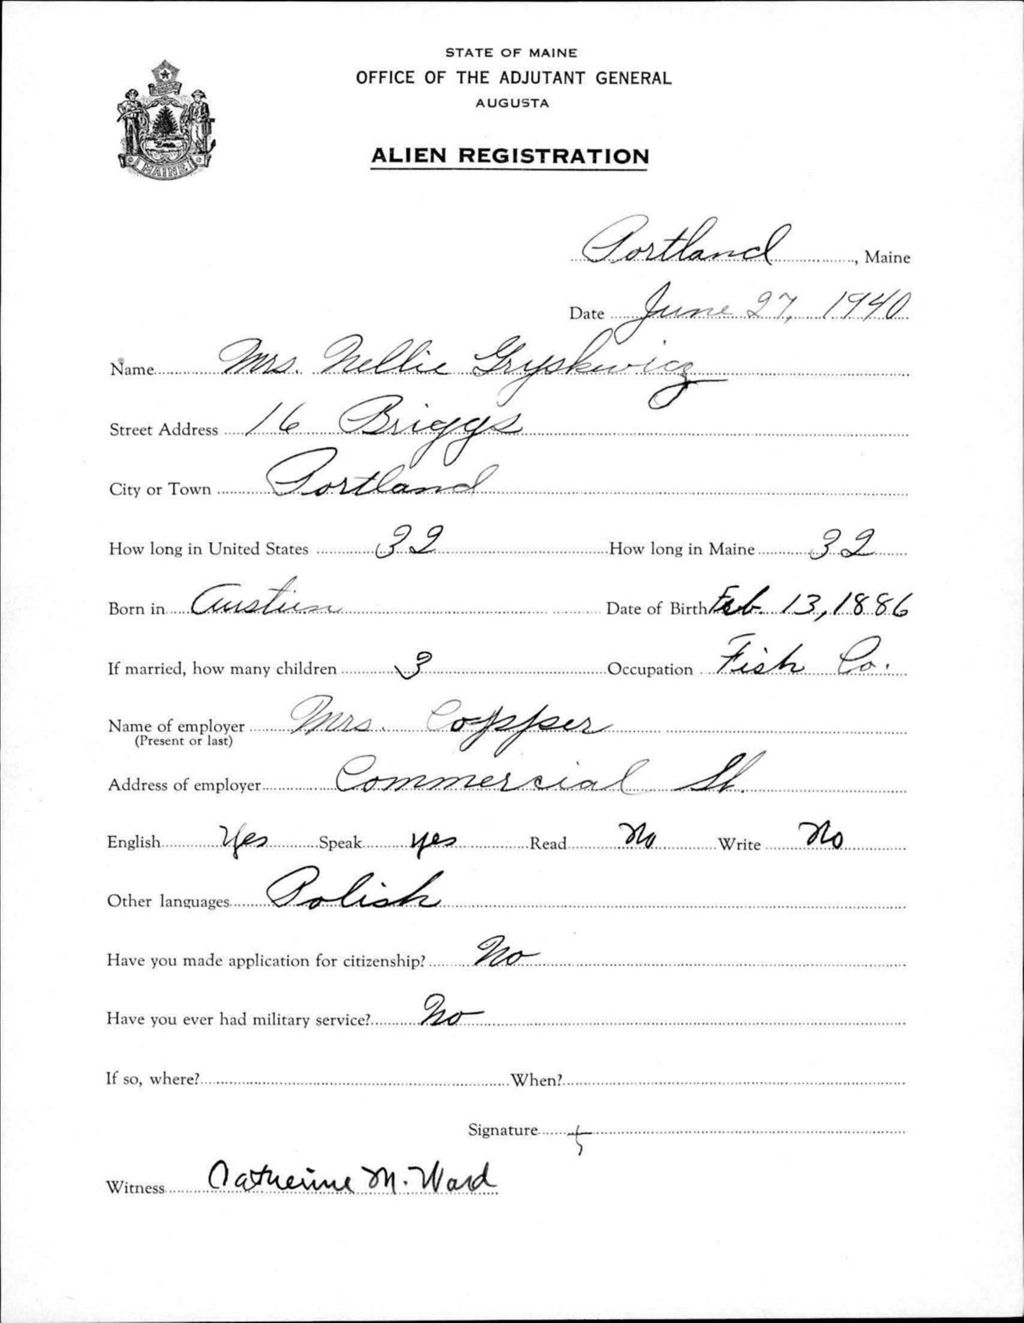 STATE OF MAINE
OFFICE OF THE ADJUTANT GENERAL
AUGUSTA
ALIEN REGISTRATION
MAINE
Portland, Maine
Date June 27, 1940
Name Mrs. Nellie Gryskewicz
Street Address 16 Briggs
City or Town Portland
How long in United States 32 How long in Maine 32
Born in Austria Date of Birth Feb. 13, 1886
If married, how many children 3 Occupation Fish Co.
Name of employer Mrs. Copper
(Present or last)
Address of employer Commercial St.
English Yes Speak yes Read No Write No
Other languages Polish
Have you made application for citizenship? No
Have you ever had military service? No
If so, where? When?
Signature
Witness Catherine M. Ward